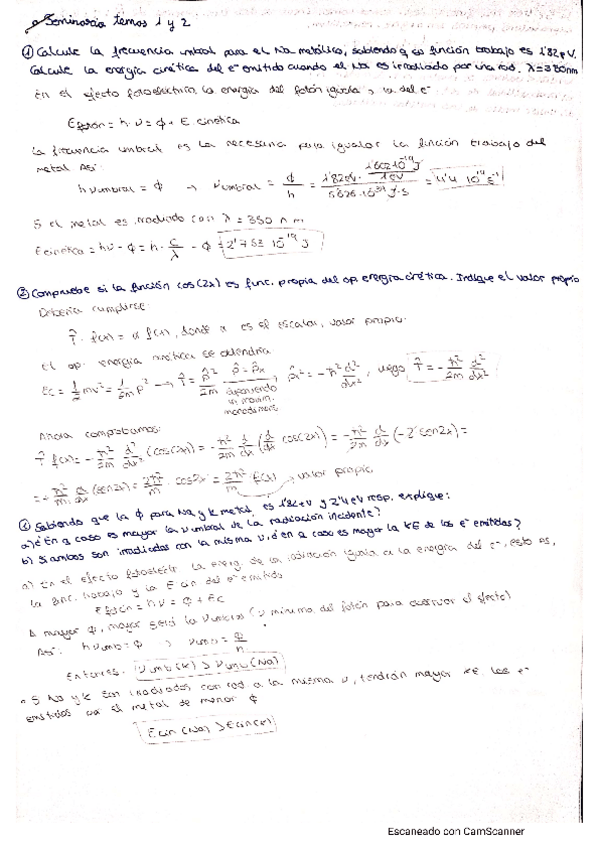 Seminario temas 1 y 2
① Calcule la frecuencia umbral para el Na metálico, sabiendo q su función trabajo es 1'82 eV.
Calcule la energía cinética del e⁻ emitido cuando el Na es irradiado por una rad. λ=350nm
En el efecto fotoeléctrico la energía del fotón iguala a la del e⁻
Efotón = h·ν = Φ + E cinética
La frecuencia umbral es la necesaria para igualar la función trabajo del
metal. Así:
hνumbral = Φ → νumbral = Φ/h = 1'82eV · 1'602·10⁻¹⁹J/1eV / 6'626·10⁻³⁴ J·s = 4'4 10¹⁴ s⁻¹
Si el metal es irradiado con λ = 350 nm
Ecinética = hν - Φ = h· c/λ - Φ = 2'753 10⁻¹⁹ J
② Compruebe si la función cos(2x) es func. propia del op. energía cinética. Indique el valor propio
Debería cumplirse:
T̂ · f(x) = α f(x), donde α es el escalar, valor propio.
El op. energía cinética se obtendría
Ec = 1/2 mv² = 1/2m p² → T̂ = p̂²/2m, p̂ = p̂x, p̂x² = -ħ² d²/dx², luego T̂ = -ħ²/2m d²/dx²
suponiendo
un movim.
monodimens.
Ahora comprobamos:
T̂ f(x) = -ħ²/2m d²/dx² (cos(2x)) = -ħ²/2m d/dx (d/dx cos(2x)) = -ħ²/2m d/dx (-2 sen2x) =
= ħ²/m d/dx (sen2x) = 2ħ²/m · cos2x = 2ħ²/m f(x) → valor propio
Sabiendo que la Φ para Na y K metál. es 1'82eV y 2'4eV resp. explique:
a) ¿En q caso es mayor la νumbral de la radiación incidente?
b) Si ambos son irradiados con la misma ν, ¿en q caso es mayor la KE de los e⁻ emitidos?
a) En el efecto fotoeléctr. la energ. de la radiación iguala a la energía del e⁻, esto es,
la func. trabajo y la E cin del e⁻ emitido
Efotón = hν = Φ + Ec
A mayor Φ, mayor será la νumbral (ν mínima del fotón para observar el efecto)
Así: hνumb = Φ → νumb = Φ/h
Entonces: νumb(K) > νumb(Na)
Si Na y K son irradiados con rad. a la misma ν, tendrán mayor KE los e⁻
emitidos por el metal de menor Φ
Ecin(Na) > Ecin(K)
Escaneado con CamScanner